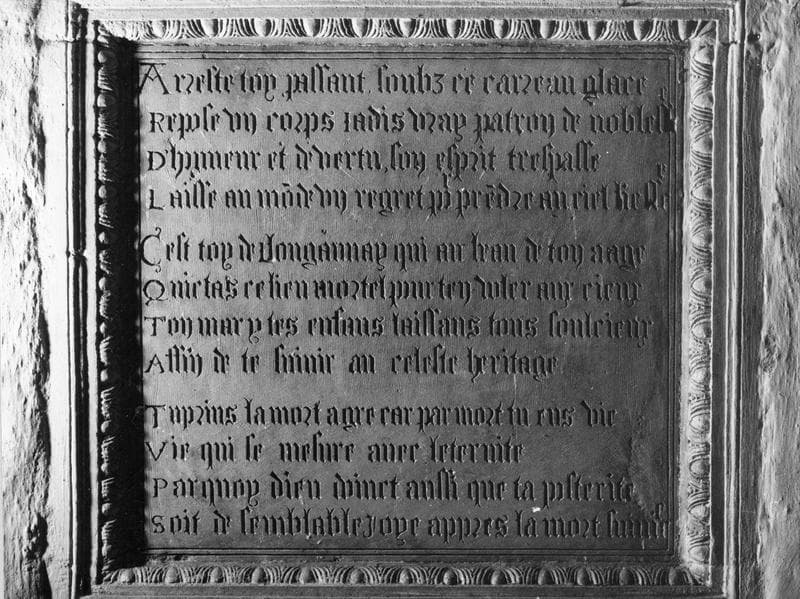 Arreste toy passant, soubz ce carreau glace
Repose vn corps Iadis vray patron de noblesse
D'hõneur et de vertu, son esprit trespasse
Laisse au mõde vn regret pr prẽdre au ciel liesse
C'est toy de Longaunay qui au beau de ton aage
Quictas ce lieu mortel pour ten voler aux cieux
Ton mary tes enfans laissans tous soulcieux
Affin de te suiuir au celeste heritage
Tu prins la mort a gre car par mort tu eus vie
Vie qui se mesure auec leternite
Parquoy dieu doinct aussi que ta posterite
Soit de semblable Joye appres la mort suiuie